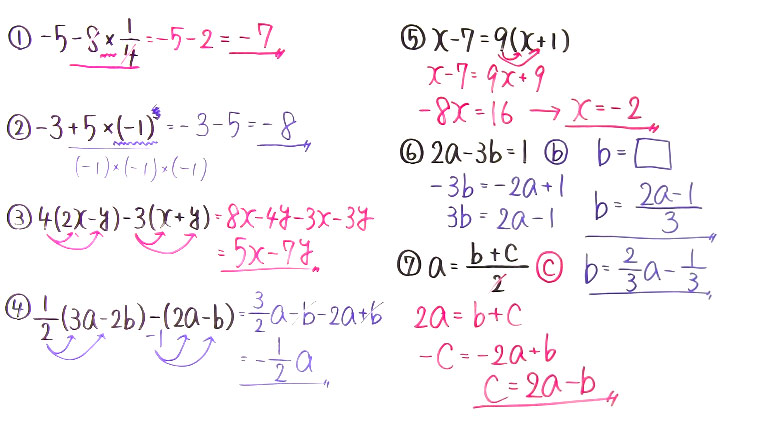 ① -5-8×1/4=-5-2=-7
② -3+5×(-1)³=-3-5=-8
(-1)×(-1)×(-1)
③ 4(2x-y)-3(x+y)=8x-4y-3x-3y
=5x-7y
④ 1/2(3a-2b)-(2a-b)=3/2a-b-2a+b
-1
=-1/2a
⑤ x-7=9(x+1)
x-7=9x+9
-8x=16 → x=-2
⑥ 2a-3b=1 ⓑ b=□
-3b=-2a+1
3b=2a-1
b=(2a-1)/3
b=2/3a-1/3
⑦ a=(b+c)/2 ⓒ
2a=b+c
-c=-2a+b
c=2a-b